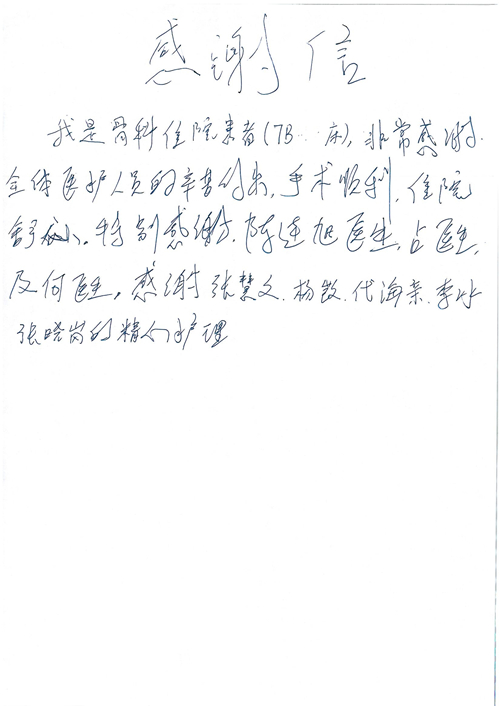 感谢信
我是骨科住院患者(7B 床),非常感谢
全体医护人员的辛苦付出,手术顺利,住院
舒心。特别感谢,陈连旭医生,占医生,
及何医生。感谢张慧文.杨敏.代海亲.李冰
张晓岗的精心护理